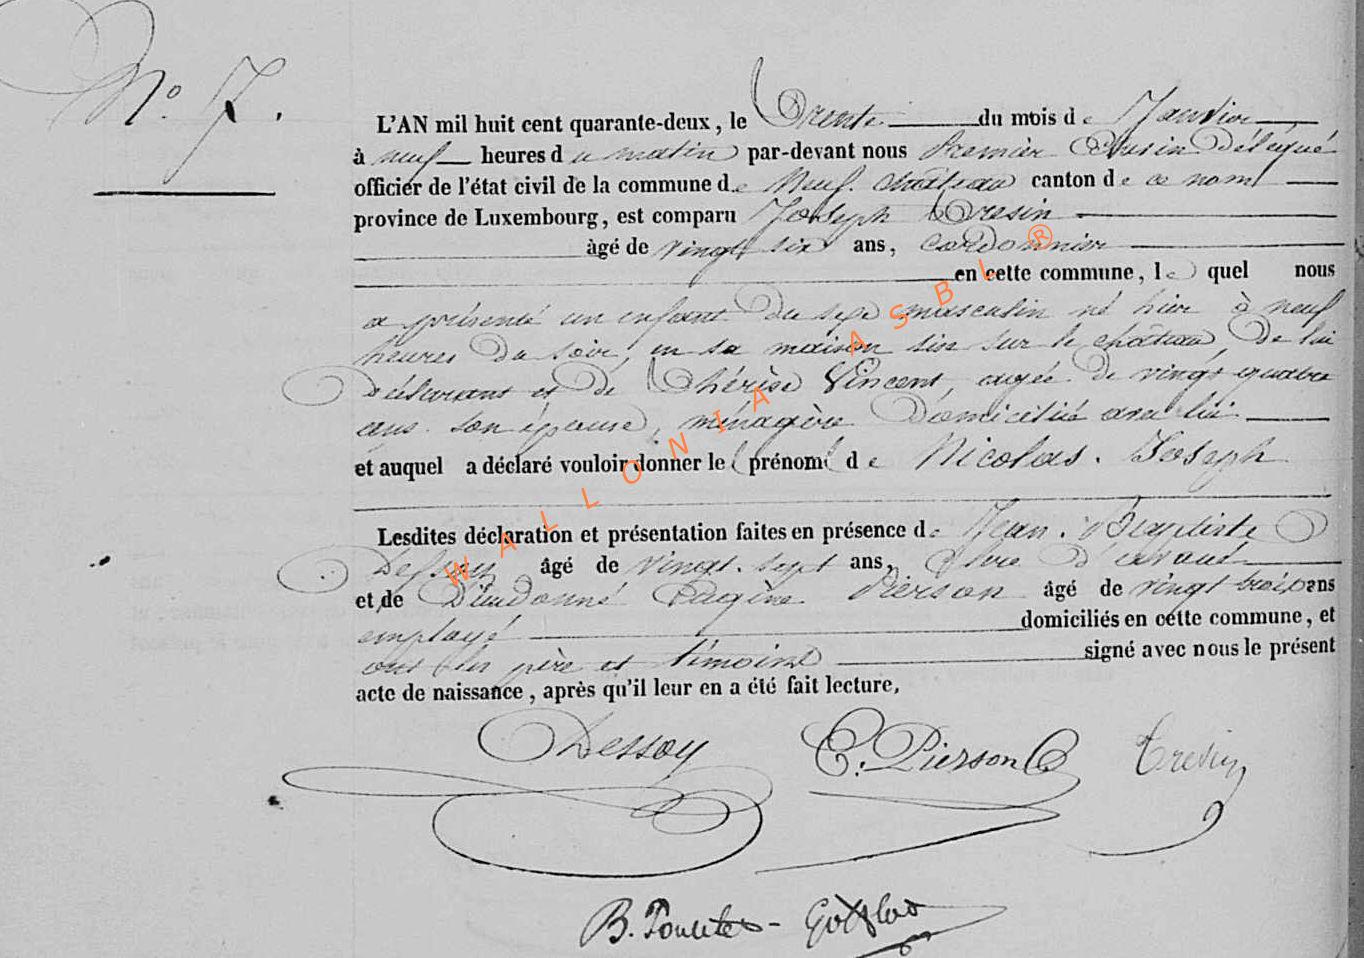 N.º 7.
L'AN mil huit cent quarante-deux, le Trente du mois de Janvier
à neuf heures du matin par-devant nous Premier Echevin Délégué
officier de l'état civil de la commune de Neuf-château canton de ce nom
province de Luxembourg, est comparu Joseph Tresin
âgé de vingt six ans, cordonnier
en cette commune, lequel nous
a présenté un enfant du sexe masculin né hier à neuf
heures du soir, en sa maison sise sur le château de lui
déclarant et de Thérèse Vincent, agée de vingt quatre
ans son épouse, ménagère domiciliée avec lui
et auquel a déclaré vouloir donner le prénom de Nicolas. Joseph
Lesdites déclaration et présentation faites en présence de Jean. Baptiste
Dessoy âgé de vingt. sept ans,
et de Dieudonné Eugène Pierson âgé de vingt trois ans
employé domiciliés en cette commune, et
ont les père et témoins signé avec nous le présent
acte de naissance, après qu'il leur en a été fait lecture,
Dessoy E. Pierson Tresin
B.
WALLONIA ASBL ®